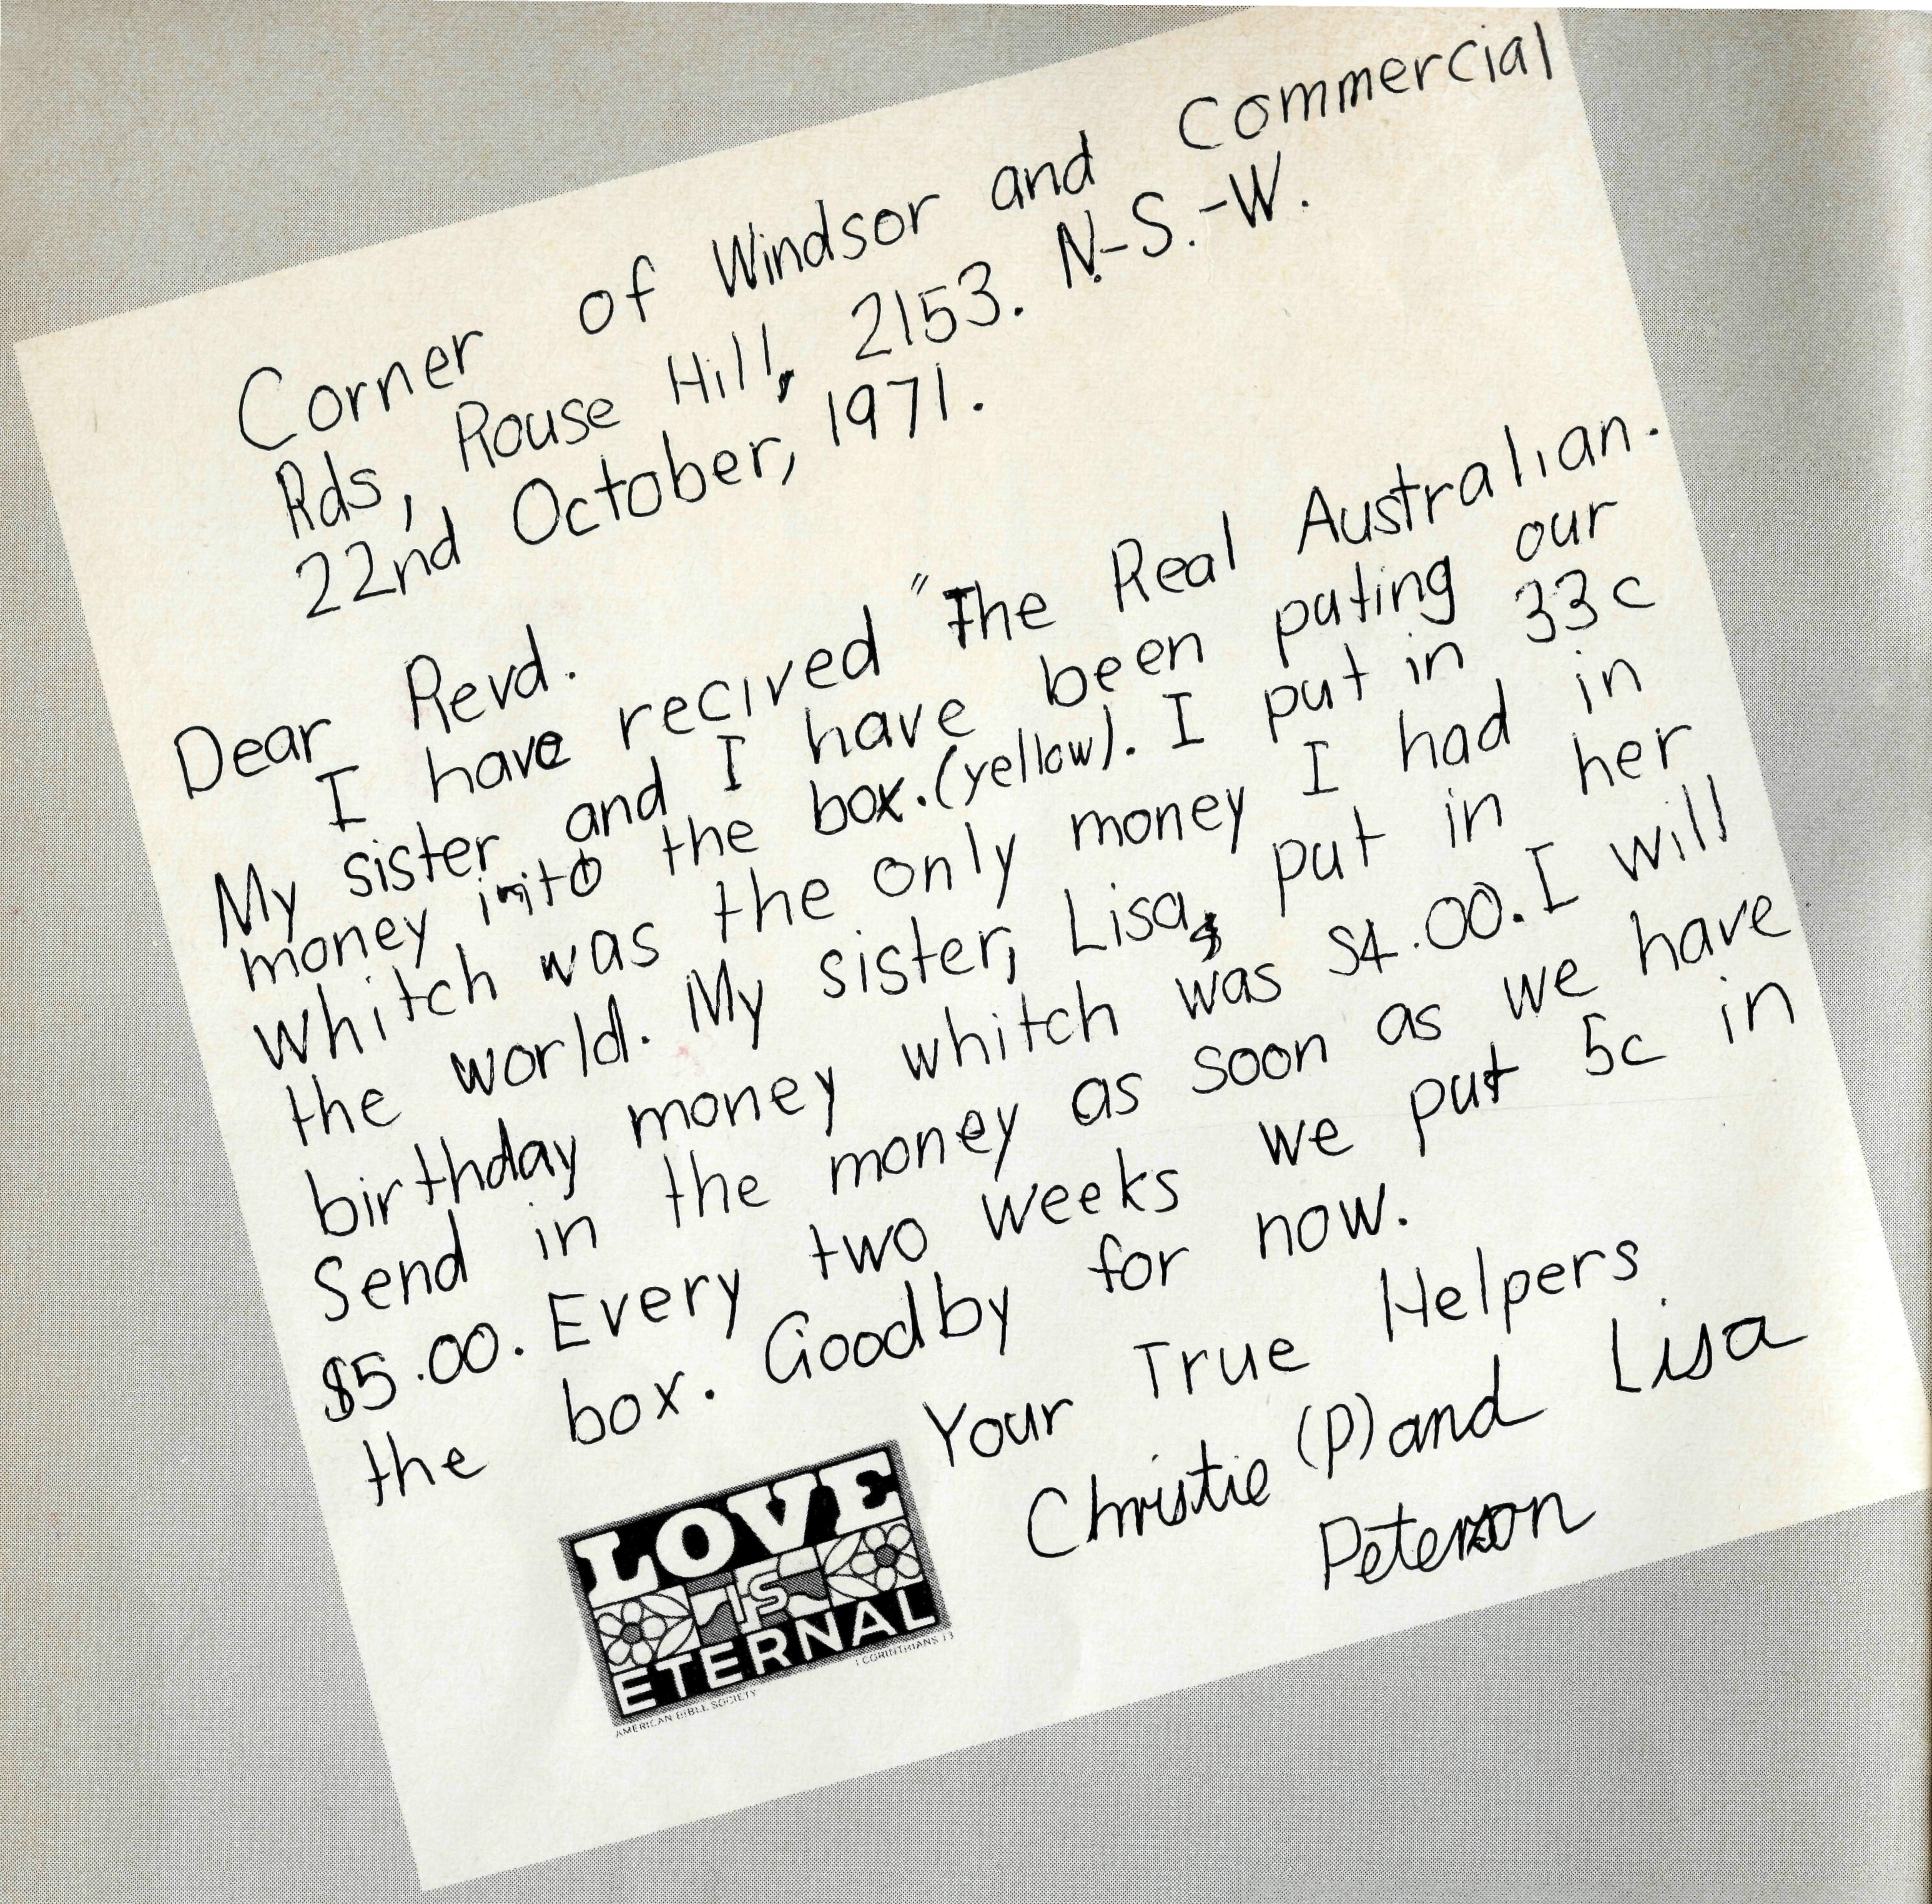 Corner of Windsor and Commercial
Rds, Rouse Hill, 2153. N.-S.-W.
22nd October, 1971.
Dear Revd.
I have recived "The Real Australian.
My sister and I have been puting our
money into the box.(yellow). I put in 33c
whitch was the only money I had in
the world. My sister, Lisa, put in her
birthday money whitch was $4.00. I will
Send in the money as soon as we have
$5.00. Every two weeks we put 5c in
the box. Goodby for now.
Your True Helpers
Christie (P) and Lisa
Peterson
LOVE
IS
ETERNAL
I CORINTHIANS 13
AMERICAN BIBLE SOCIETY